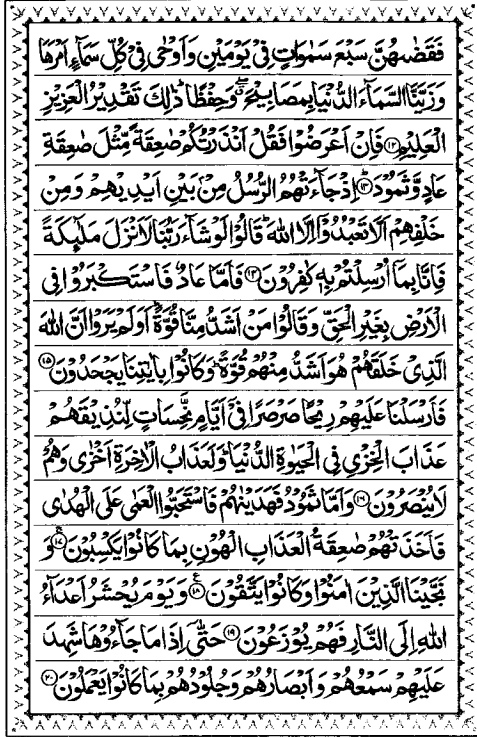 فَقَضٰىهُنَّ سَبْعَ سَمٰوَاتٍ فِيْ يَوْمَيْنِ وَاَوْحٰى فِيْ كُلِّ سَمَآءٍ اَمْرَهَا
وَزَيَّنَّا السَّمَآءَ الدُّنْيَا بِمَصَابِيْحَ ۖ وَحِفْظًا ؕ ذٰلِكَ تَقْدِيْرُ الْعَزِيْزِ
الْعَلِيْمِ ﴿۱۲﴾ فَاِنْ اَعْرَضُوْا فَقُلْ اَنْذَرْتُكُمْ صٰعِقَةً مِّثْلَ صٰعِقَةِ
عَادٍ وَّثَمُوْدَ ﴿۱۳﴾ اِذْ جَآءَتْهُمُ الرُّسُلُ مِنْۢ بَيْنِ اَيْدِيْهِمْ وَمِنْ
خَلْفِهِمْ اَلَّا تَعْبُدُوْۤا اِلَّا اللّٰهَ ؕ قَالُوْا لَوْ شَآءَ رَبُّنَا لَاَنْزَلَ مَلٰٓئِكَةً
فَاِنَّا بِمَاۤ اُرْسِلْتُمْ بِهٖ كٰفِرُوْنَ ﴿۱۴﴾ فَاَمَّا عَادٌ فَاسْتَكْبَرُوْا فِي
الْاَرْضِ بِغَيْرِ الْحَقِّ وَقَالُوْا مَنْ اَشَدُّ مِنَّا قُوَّةً ؕ اَوَلَمْ يَرَوْا اَنَّ اللّٰهَ
الَّذِيْ خَلَقَهُمْ هُوَ اَشَدُّ مِنْهُمْ قُوَّةً ؕ وَكَانُوْا بِاٰيٰتِنَا يَجْحَدُوْنَ ﴿۱۵﴾
فَاَرْسَلْنَا عَلَيْهِمْ رِيْحًا صَرْصَرًا فِيْۤ اَيَّامٍ نَّحِسَاتٍ لِّنُذِيْقَهُمْ
عَذَابَ الْخِزْيِ فِي الْحَيٰوةِ الدُّنْيَا ؕ وَلَعَذَابُ الْاٰخِرَةِ اَخْزٰى وَهُمْ
لَا يُنْصَرُوْنَ ﴿۱۶﴾ وَاَمَّا ثَمُوْدُ فَهَدَيْنٰهُمْ فَاسْتَحَبُّوا الْعَمٰى عَلَى الْهُدٰى
فَاَخَذَتْهُمْ صٰعِقَةُ الْعَذَابِ الْهُوْنِ بِمَا كَانُوْا يَكْسِبُوْنَ ﴿۱۷﴾ وَ
نَجَّيْنَا الَّذِيْنَ اٰمَنُوْا وَكَانُوْا يَتَّقُوْنَ ﴿۱۸﴾ ع وَيَوْمَ يُحْشَرُ اَعْدَآءُ
اللّٰهِ اِلَى النَّارِ فَهُمْ يُوْزَعُوْنَ ﴿۱۹﴾ حَتّٰۤى اِذَا مَا جَآءُوْهَا شَهِدَ
عَلَيْهِمْ سَمْعُهُمْ وَاَبْصَارُهُمْ وَجُلُوْدُهُمْ بِمَا كَانُوْا يَعْمَلُوْنَ ﴿۲۰﴾